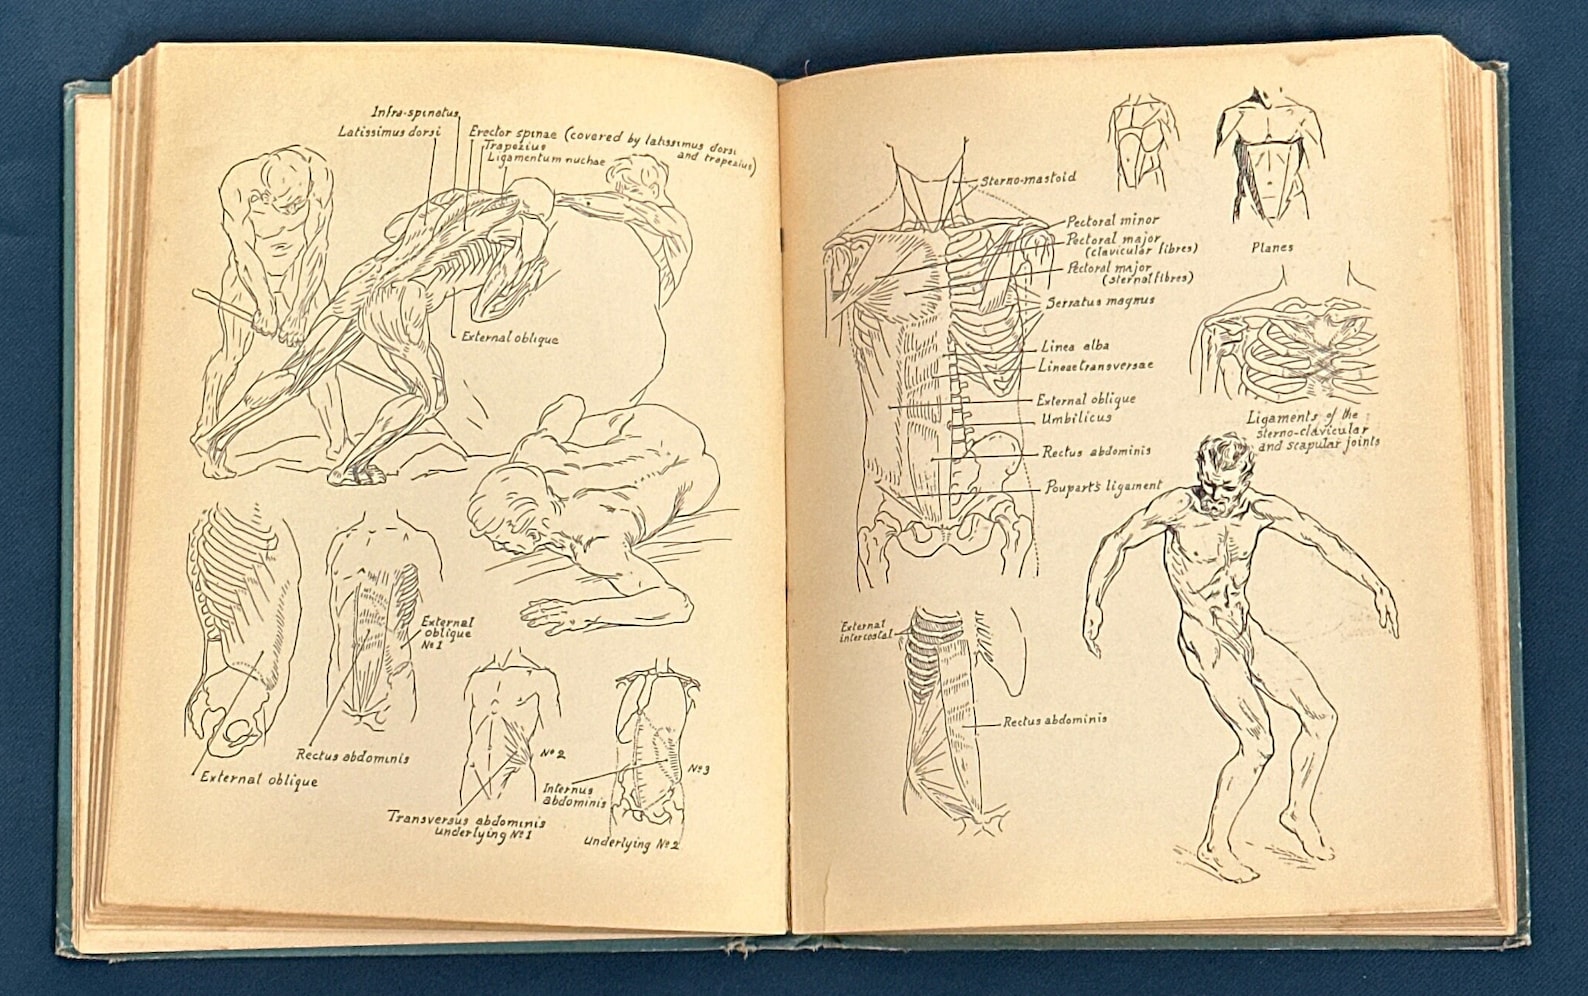 Infra-spinatus
Latissimus dorsi
Erector spinae (covered by latissimus dorsi
and trapezius)
Trapezius
Ligamentum nuchae
External oblique
External
oblique
Nº1
Rectus abdominis
External oblique
Nº2
Transversus abdominis
underlying Nº1
Internus
abdominis
Nº3
Underlying Nº2
Sterno-mastoid
Pectoral minor
Pectoral major
(clavicular fibres)
Pectoral major
(sternal fibres)
Serratus magnus
Linea alba
Lineae transversae
External oblique
Umbilicus
Rectus abdominis
Poupart's ligament
External
intercostal
Rectus abdominis
Planes
Ligaments of the
sterno-clavicular
and scapular joints